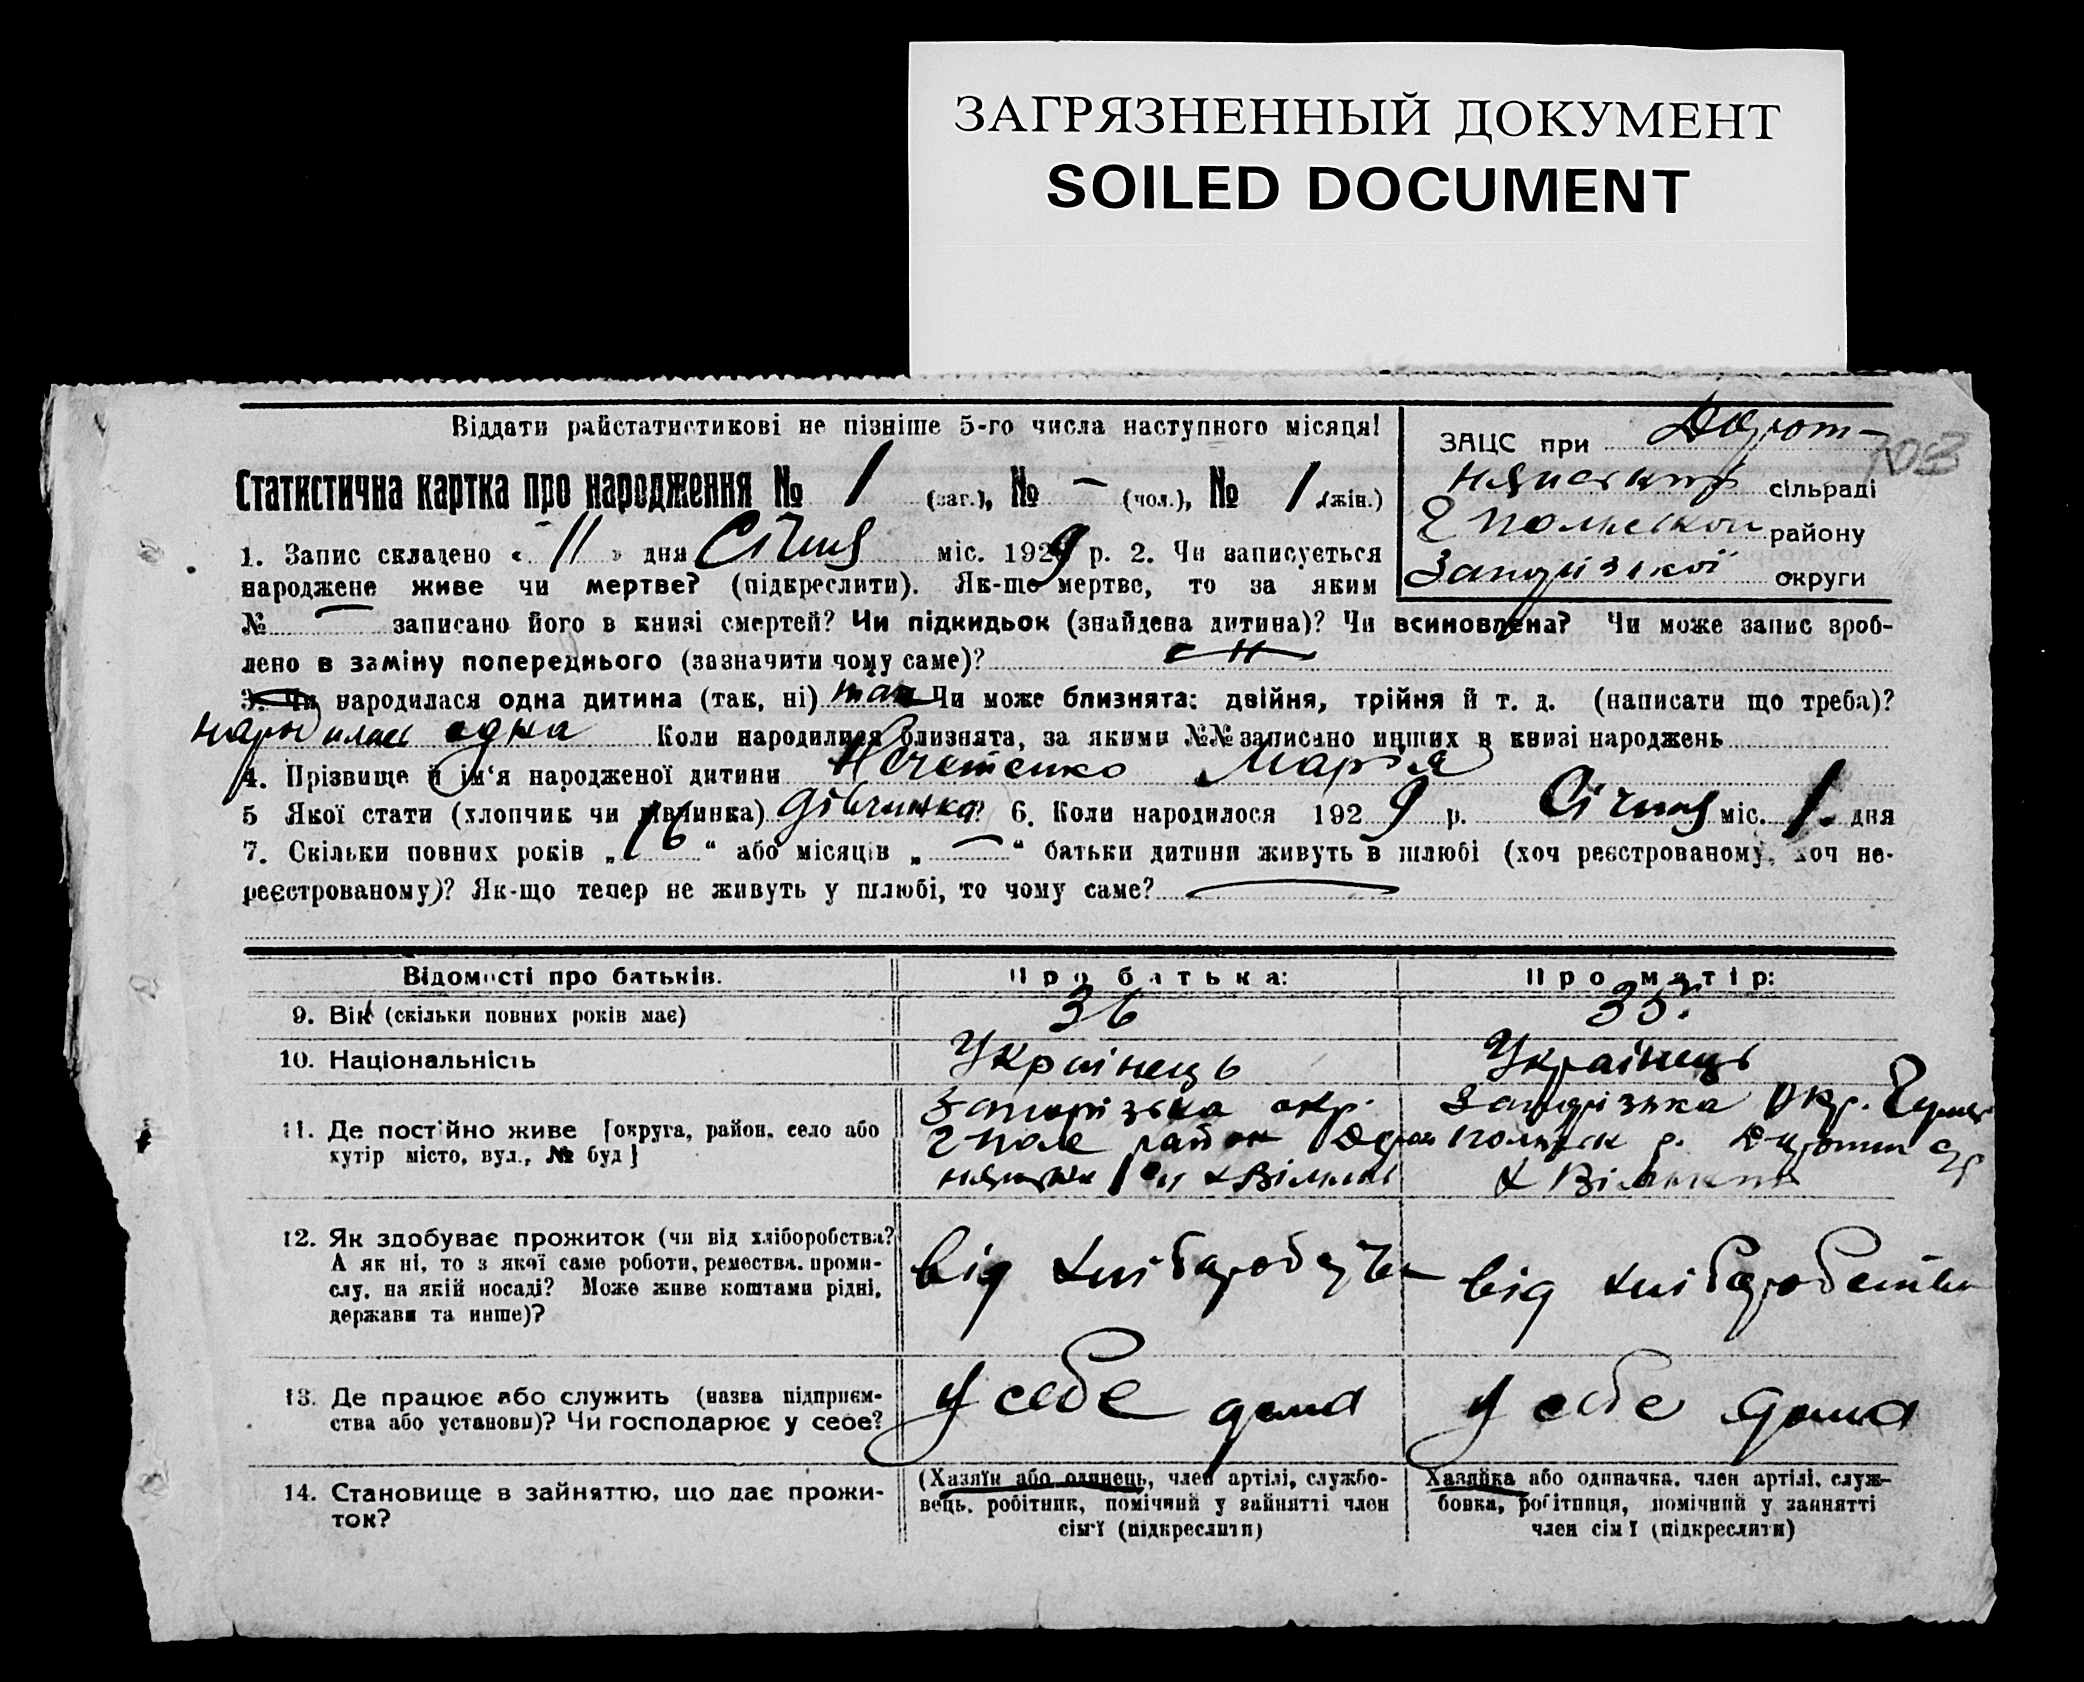 ЗАГРЯЗНЕННЫЙ ДОКУМЕНТ
SOILED DOCUMENT
Віддати райстатистикові не пізніше 5-го числа наступного місяця!
ЗАЦС при
сільраді
району
Запорізької округи
Статистична картка про народження № 1 (заг.), № – (чол.), № 1 (жін.)
1. Запис складено « 11 » дня Січня міс. 1929 р. 2. Чи записується
народжене живе чи мертве? (підкреслити). Як-що мертве, то за яким
№ — записано його в книзі смертей? Чи підкидьок (знайдена дитина)? Чи всиновлена? Чи може запис зроб-
лено в заміну попереднього (зазначити чому саме)?
3. Чи народилася одна дитина (так, ні) так Чи може близнята: двійня, трійня й т. д. (написати що треба)?
одна Коли народилися близнята, за якими №№ записано инших в книзі народжень
4. Прізвище й ім'я народженої дитини Марія
5 Якої стати (хлопчик чи дівчинка) дівчинка 6. Коли народилося 1929 р. Січня міс. 1 дня
7. Скільки повних років „ 16 “ або місяців „ — “ батьки дитини живуть в шлюбі (хоч реєстрованому, хоч не-
реєстрованому)? Як-що тепер не живуть у шлюбі, то чому саме? —
Відомості про батьків.
Про батька:
Про матір:
9. Вік (скільки повних років має)
36
35.
10. Національність
Українець
Українець
11. Де постійно живе [округа, район, село або
хутір місто, вул., № буд]
Запорізька окр.
район
Запорізька Окр.
12. Як здобуває прожиток (чи від хліборобства?
А як ні, то з якої саме роботи, ремества, проми-
слу, на якій посаді? Може живе коштами рідні,
держави та инше)?
від
від хліборобства
13. Де працює або служить (назва підприєм-
ства або установи)? Чи господарює у себе?
У себе дома
У себе дома
14. Становище в зайняттю, що дає прожи-
ток?
(Хазяїн або одинець, член артілі, службо-
вець, робітник, помічний у зайнятті член
сім'ї (підкреслити)
Хазяйка або одиначка, член артілі, служ-
бовка, робітниця, помічний у зайнятті
член сім'ї (підкреслити)